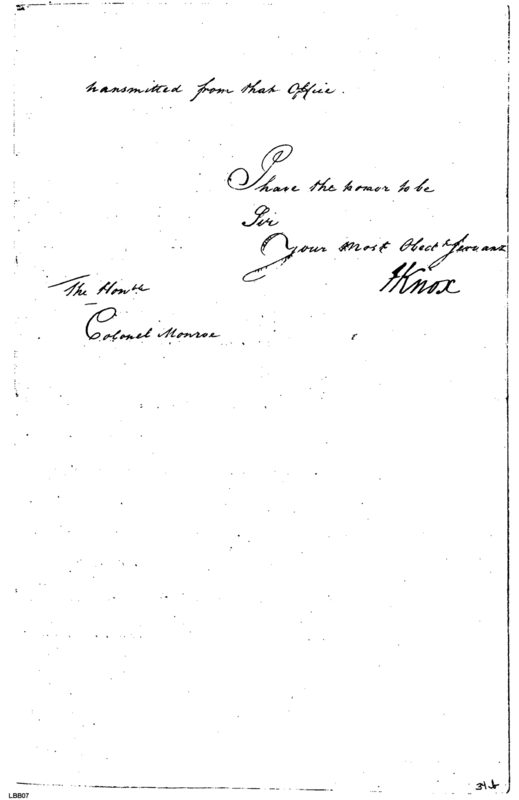 transmitted from that Office.
I have the honor to be
Sir
Your most Obedt Servant
HKnox
The Honble
Colonel Monroe
LBB07